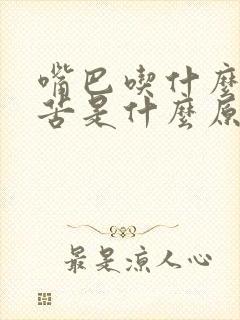 嘴巴喫什麼
苦是什麼原
最是涼人心